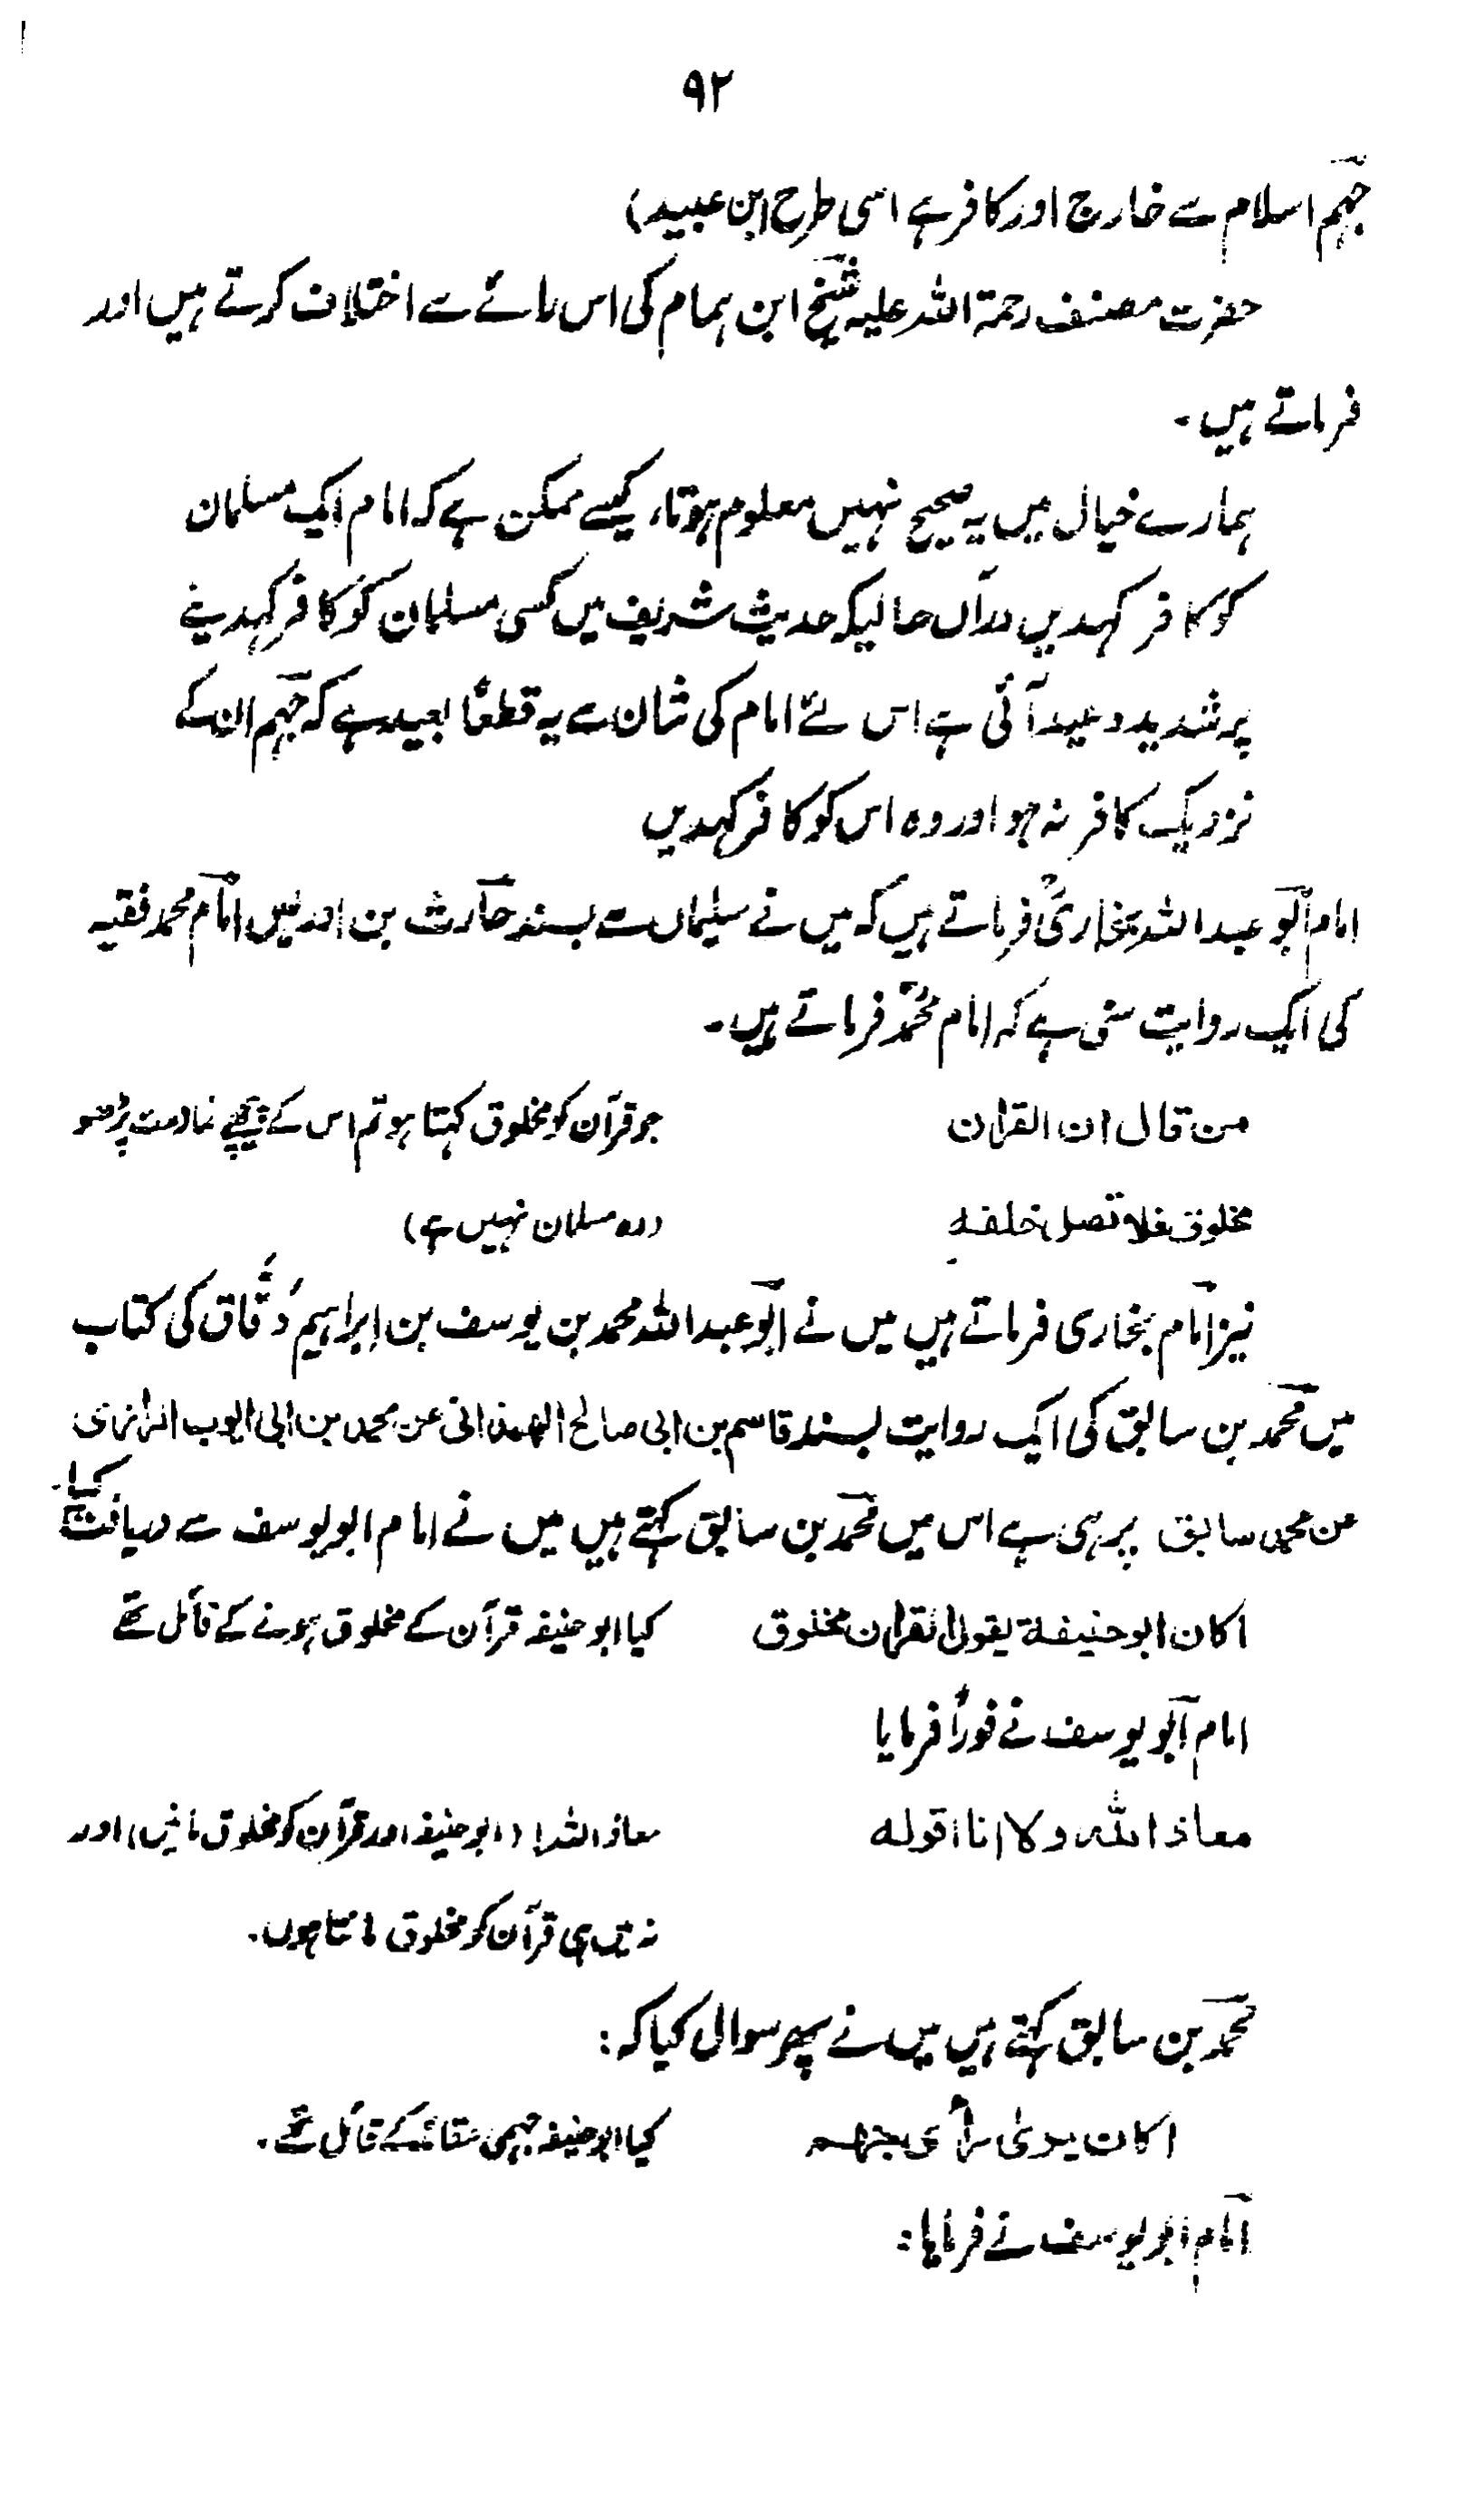 ۹۲
جہم اسلام سے خارج اور کافر ہے اسی طرح ابن عبید)
حضرت مصنف رحمۃ اللہ علیہ شیخ ابن ہمام کی اس رائے سے اختلاف کرتے ہیں اور
فرماتے ہیں۔
ہمارے خیال میں یہ صحیح نہیں معلوم ہوتا، کیسے ممکن ہے کہ امام ایک مسلمان
کو کافر کہدیں درآں حالیکہ حدیث شریف میں کسی مسلمان کو کافر کہدینے
پر شدید وعید آئی ہے اس لئے امام کی شان سے یہ قطعًا بعید ہے کہ جہم ان کے
نزدیک کافر نہ ہو اور وہ اس کو کافر کہدیں
امام ابو عبد اللہ بخاریؒ فرماتے ہیں کہ میں نے سلیمان سے بسند حارث بن ادریس امام محمد فقیہ
کی ایک روایت سنی ہے کہ امام محمدؒ فرماتے ہیں۔
من قال ان القرآن جو قرآن کو مخلوق کہتا ہو تم اس کے پیچھے نماز مت پڑھو
مخلوق فلا تصل خلفہ (وہ مسلمان نہیں ہے)
نیز امام بخاری فرماتے ہیں میں نے ابو عبد اللہ محمد بن یوسف بن ابراہیم دُقّاق کی کتاب
میں محمد بن سابق کی ایک روایت بسند قاسم بن ابی صالح الھمذانی عن محمد بن ابی ایوب الرازی
عن محمد سابق پڑھی ہے اس میں محمد بن سابق کہتے ہیں میں نے امام ابو یوسف سے دریافت کیا۔
اکان ابو حنیفة یقول القرآن مخلوق کیا ابو حنیفہ قرآن کے مخلوق ہونے کے قائل تھے
امام ابو یوسف نے فورًا فرمایا
معاذ اللہ ولا انا اقوله معاذ اللہ! (ابو حنیفہ اور قرآن کو مخلوق مانیں) اور
نہ میں ہی قرآن کو مخلوق مانتا ہوں۔
محمد بن سابق کہتے ہیں میں نے پھر سوال کیا کہ:
اکان یریٰ رأی جهم کیا ابو حنیفہ جہمی عقائد کے قائل تھے۔
امام ابو یوسف نے فرمایا: